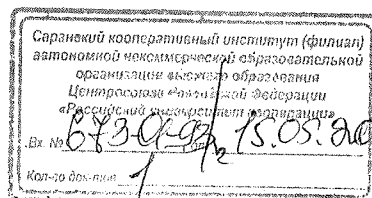 Саранский кооперативный институт (филиал)
автономной некоммерческой образовательной
организации высшего образования
Центросоюза Российской Федерации
«Российский университет кооперации»
Вх. № 673-01-09/2 15.05.20
Кол-во док-тов 1